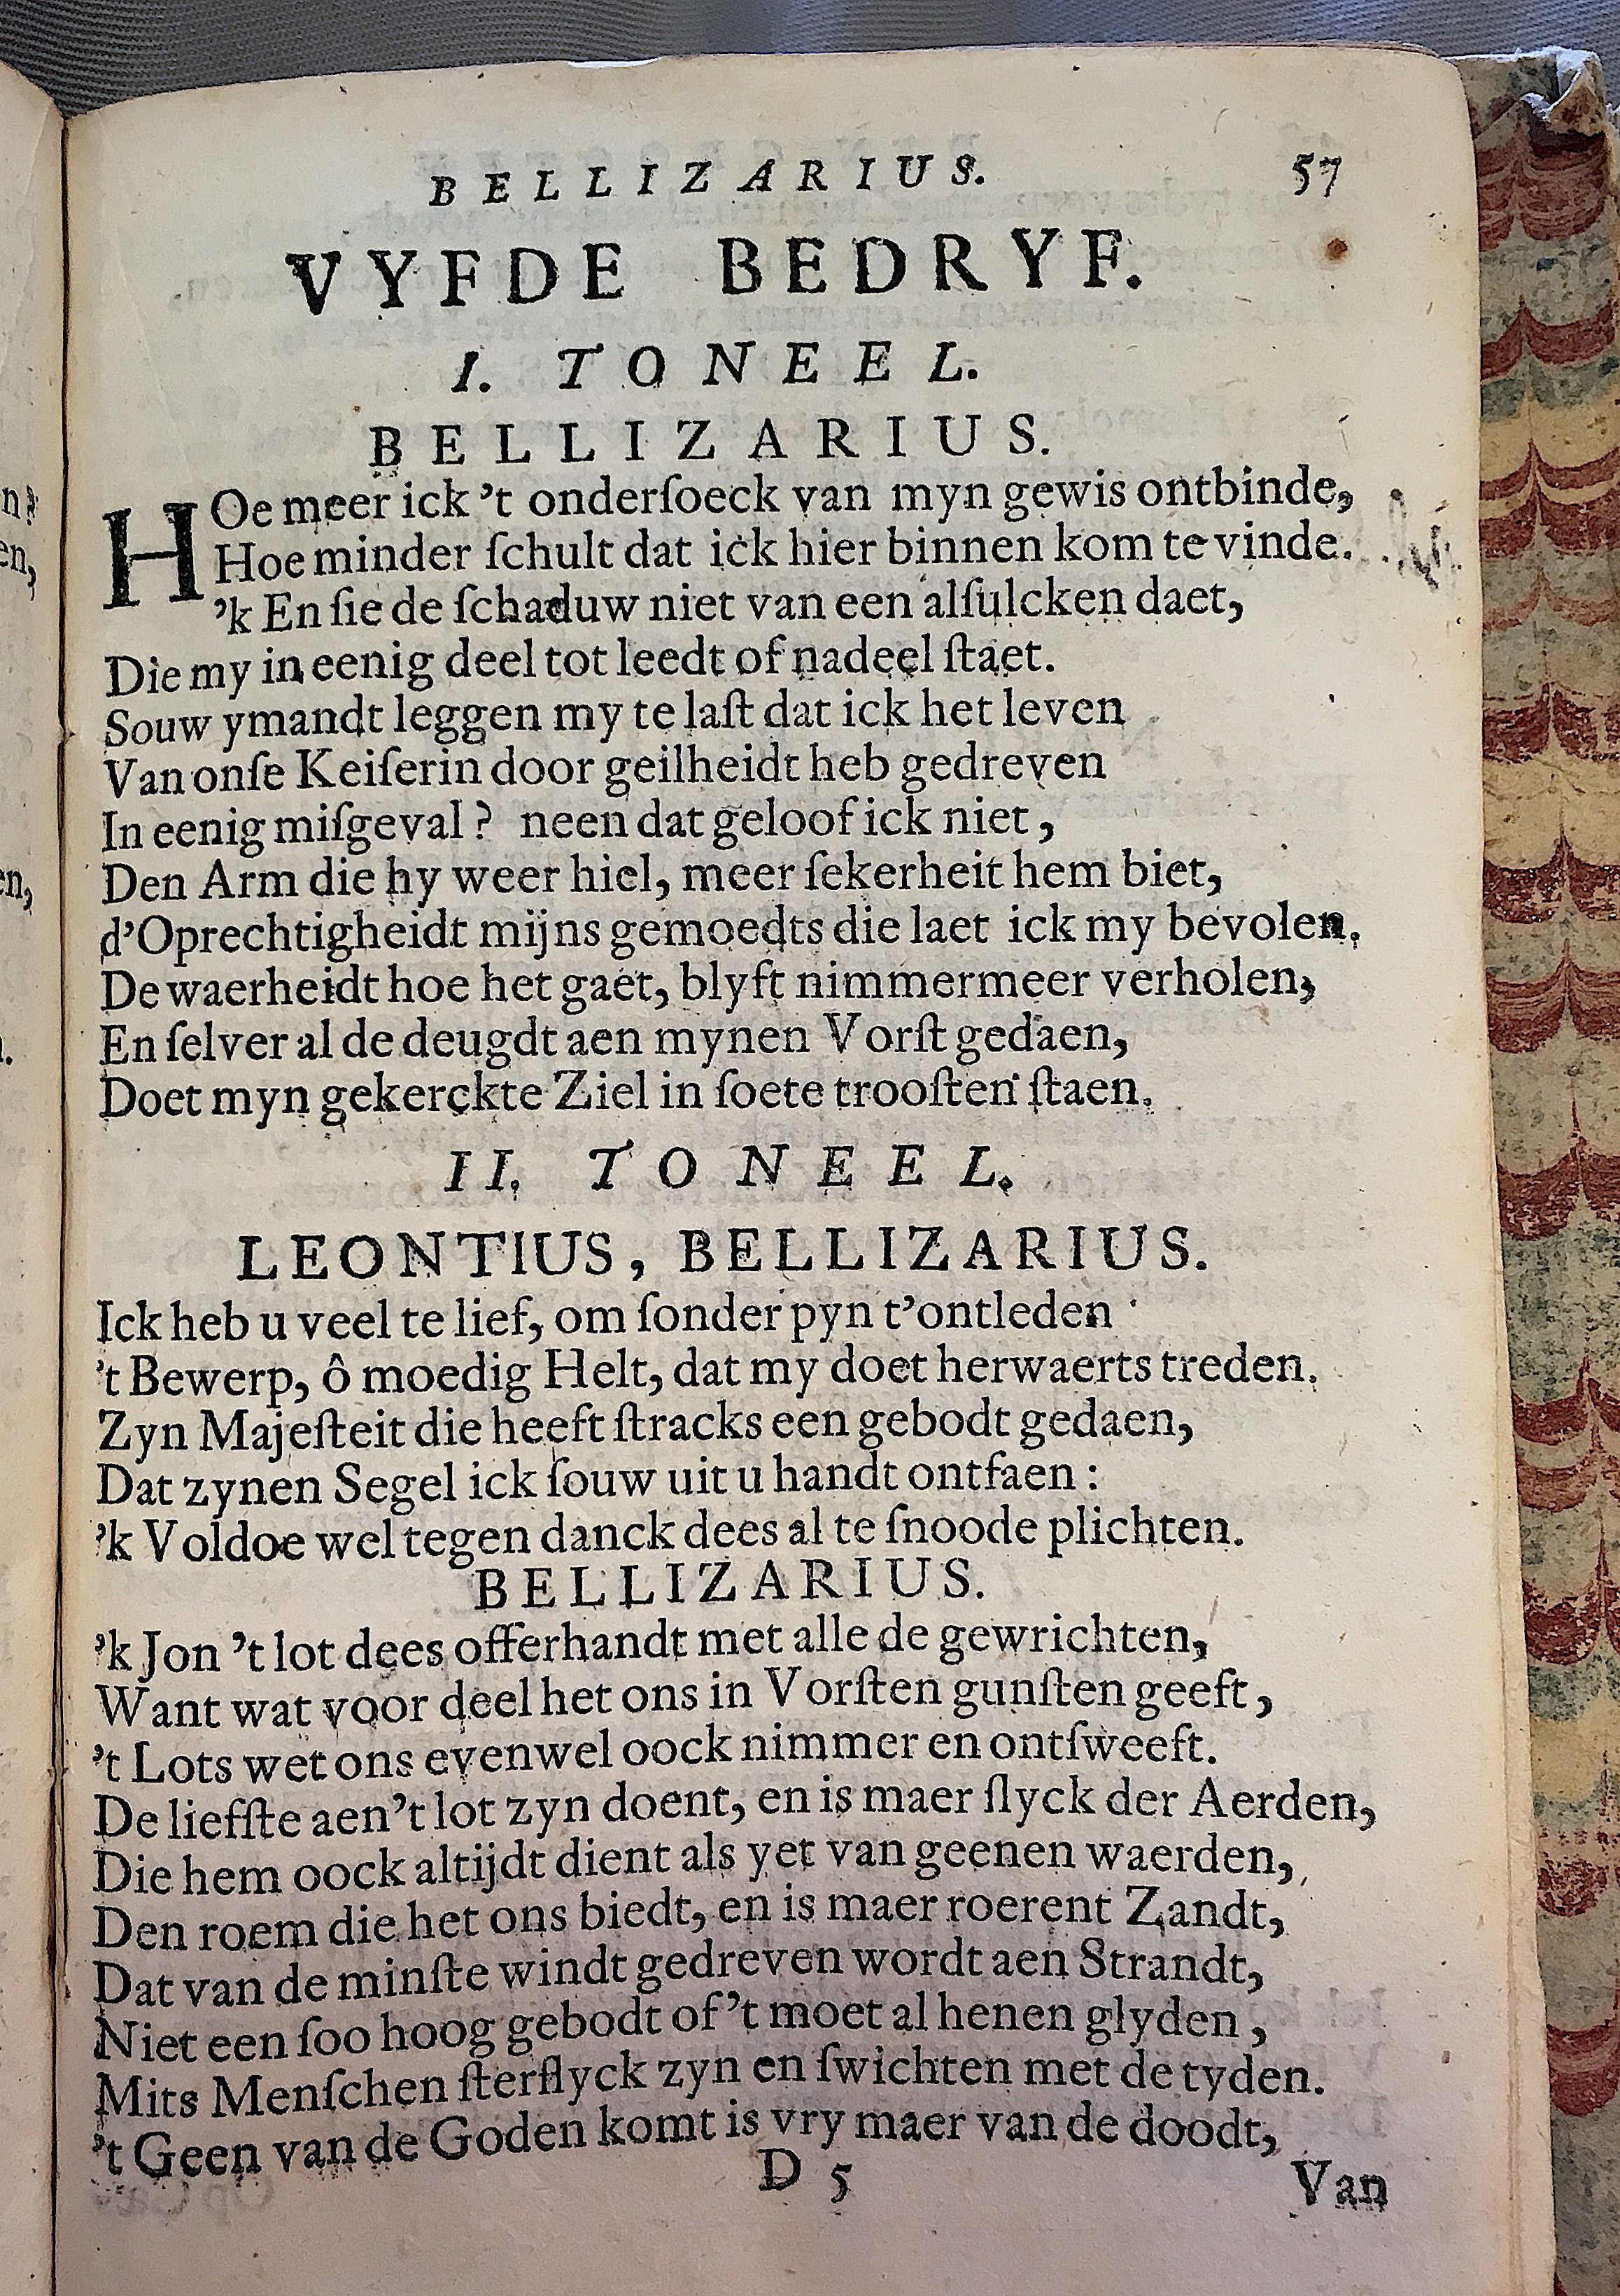 BELLIZARIUS. 57
VYFDE BEDRYF.
I. TONEEL.
BELLIZARIUS.
HOe meer ick 't onderſoeck van myn gewis ontbinde,
Hoe minder ſchult dat ick hier binnen kom te vinde.
'k En ſie de ſchaduw niet van een alſulcken daet,
Die my in eenig deel tot leedt of nadeel ſtaet.
Souw ymandt leggen my te laſt dat ick het leven
Van onſe Keiſerin door geilheidt heb gedreven
In eenig miſgeval? neen dat geloof ick niet,
Den Arm die hy weer hiel, meer ſekerheit hem biet,
d'Oprechtigheidt mijns gemoedts die laet ick my bevolen.
De waerheidt hoe het gaet, blyft nimmermeer verholen,
En ſelver al de deugdt aen mynen Vorſt gedaen,
Doet myn gekerckte Ziel in ſoete trooſten ſtaen.
II. TONEEL.
LEONTIUS, BELLIZARIUS.
Ick heb u veel te lief, om ſonder pyn t'ontleden
't Bewerp, ô moedig Helt, dat my doet herwaerts treden.
Zyn Majeſteit die heeft ſtracks een gebodt gedaen,
Dat zynen Segel ick ſouw uit u handt ontfaen:
'k Voldoe wel tegen danck dees al te ſnoode plichten.
BELLIZARIUS.
'k Jon 't lot dees offerhandt met alle de gewrichten,
Want wat voor deel het ons in Vorſten gunſten geeft,
't Lots wet ons evenwel oock nimmer en ontſweeft.
De liefſte aen't lot zyn doent, en is maer ſlyck der Aerden,
Die hem oock altijdt dient als yet van geenen waerden,
Den roem die het ons biedt, en is maer roerent Zandt,
Dat van de minſte windt gedreven wordt aen Strandt,
Niet een ſoo hoog gebodt of 't moet al henen glyden,
Mits Menſchen ſterflyck zyn en ſwichten met de tyden.
't Geen van de Goden komt is vry maer van de doodt,
D 5 Van